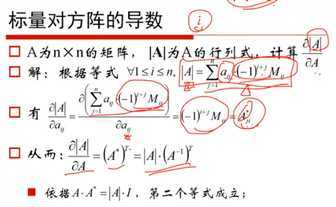 标量对方阵的导数
A为n×n的矩阵，|A|为A的行列式，计算 ∂|A|/∂A
解：根据等式 ∀1≤i≤n, |A| = ∑_{j=1}^{n} a_{ij}·(-1)^{i+j} M_{ij}
有 ∂|A|/∂a_{ij} = ∂(∑_{j=1}^{n} a_{ij}·(-1)^{i+j} M_{ij})/∂a_{ij} = (-1)^{i+j} M_{ij} = A*_{ji}
从而：∂|A|/∂A = (A*)^T = |A|·(A^{-1})^T
依据 A·A* = |A|·I，第二个等式成立；